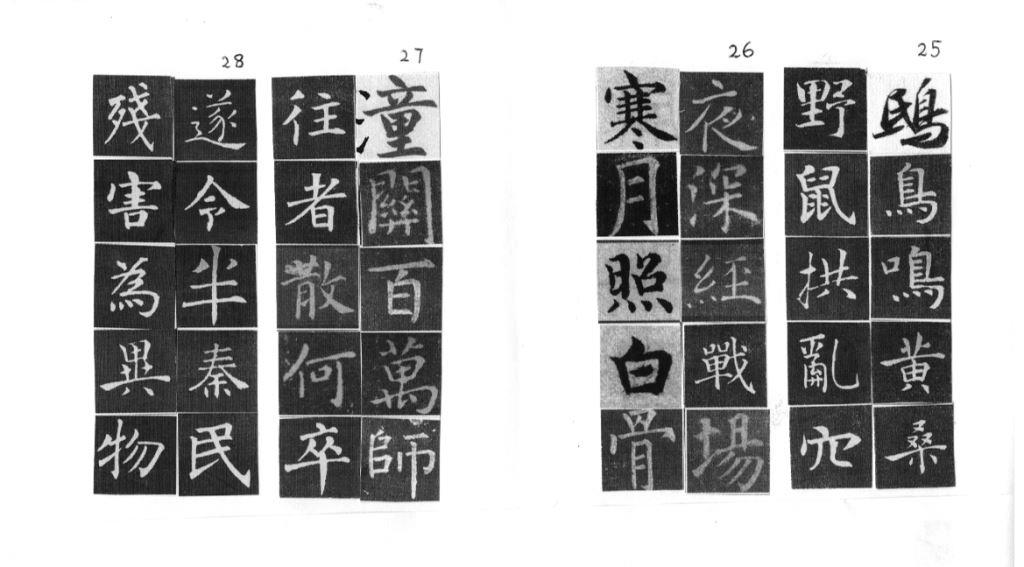 25
鴟鳥鳴黄桑
野鼠拱亂穴
26
夜深經戰場
寒月照白骨
27
潼關百萬師
往者散何卒
28
遂令半秦民
殘害為異物